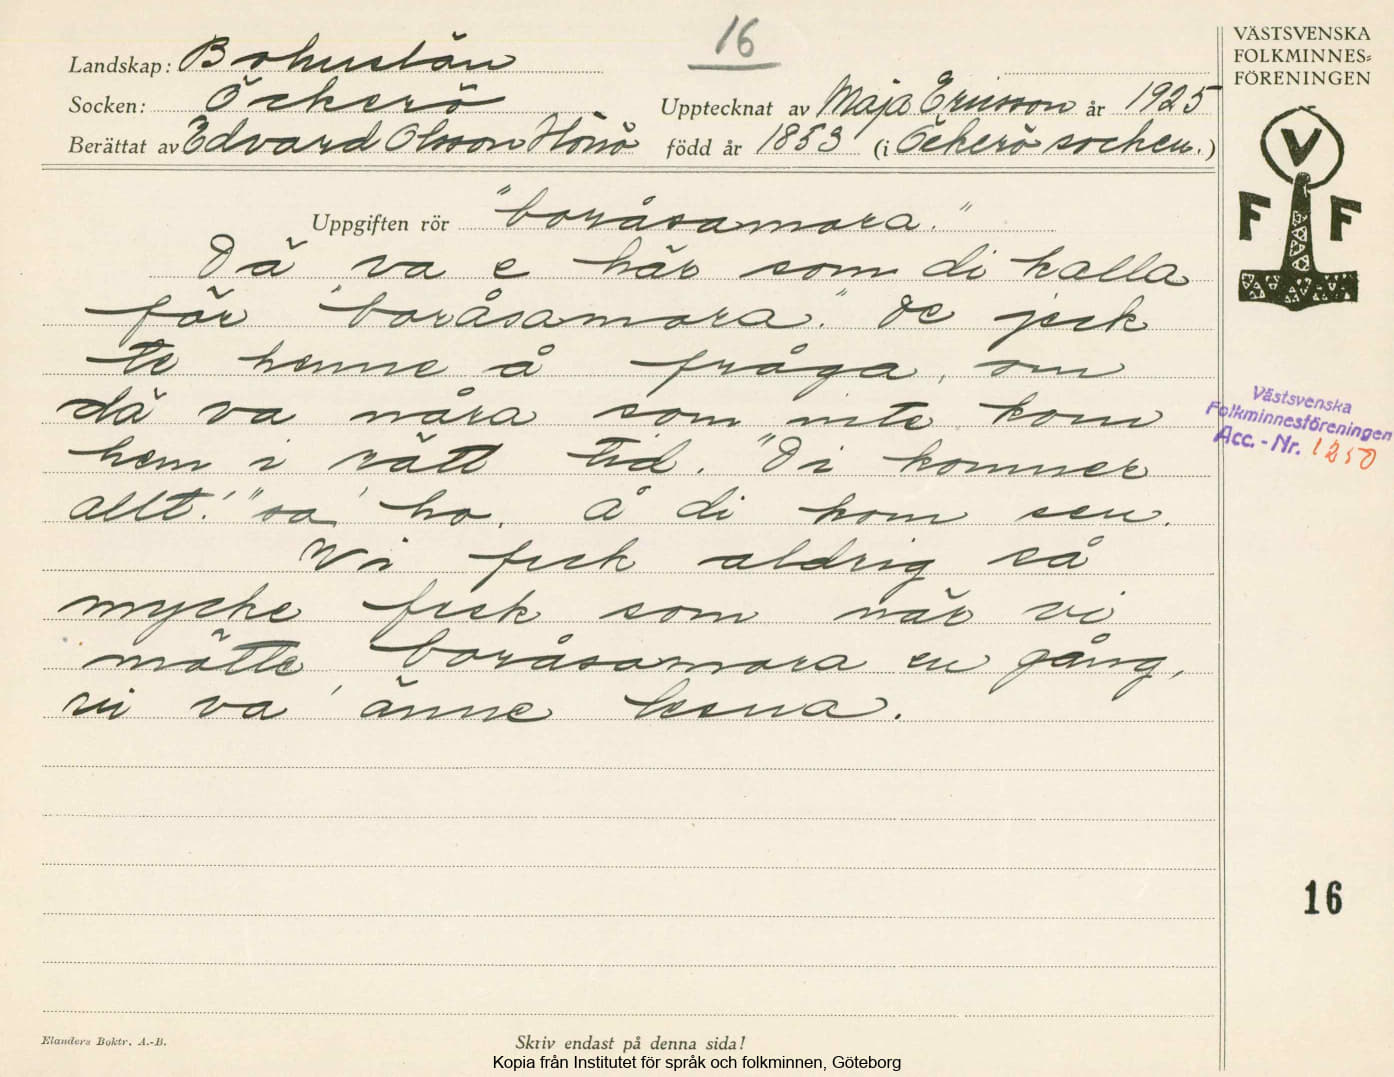 16
VÄSTSVENSKA
FOLKMINNES=
FÖRENINGEN
Landskap: Bohuslän
Socken: Öckerö
Upptecknat av Maja Ericsson år 1925
Berättat av Edvard Olsson Hönö född år 1853 (i Öckerö socken.)
V
F F
Uppgiften rör "boråsamora."
Dä va e här som di kalla
för "boråsamora." De jeck
te henne å fråga, om
dä va nåra som inte kom
hem i rätt tid. "Di kommer
allt!" sa' ho. Å di kom sen.
Vi feck aldrig så
mycke fesk som när vi
mötte boråsamora en gång,
vi va' änne kesna.
Västsvenska
Folkminnesföreningen
Acc. - Nr. 1250
16
Elanders Boktr. A.-B.
Skriv endast på denna sida!
Kopia från Institutet för språk och folkminnen, Göteborg